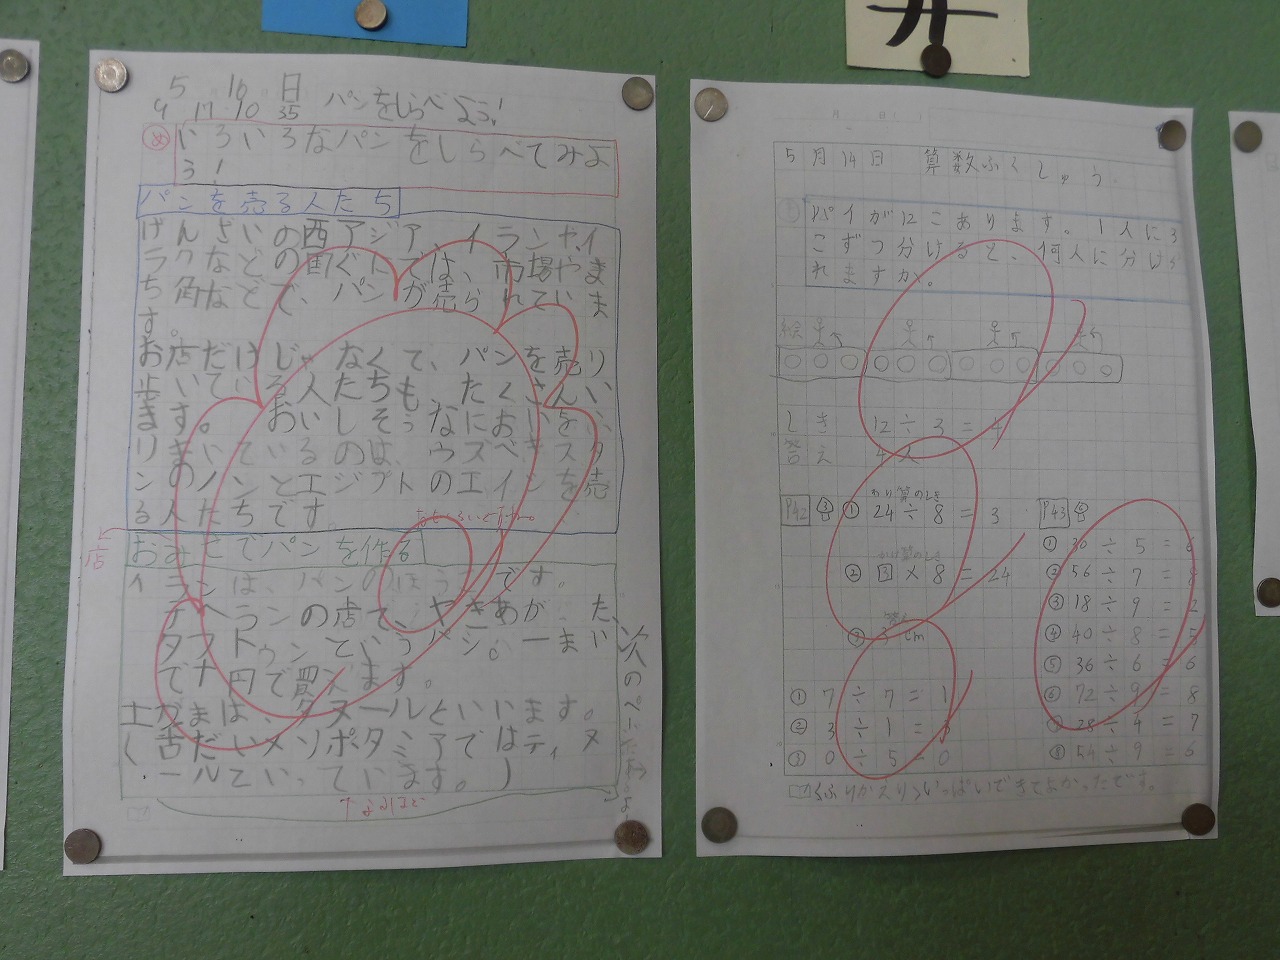 5 16 日
9 17 10 35 パンをしらべよう!
め いろいろなパンをしらべてみよ
う!
パンを売る人たち
げんざいの西アジア、イランや、イ
ラクなどの国ぐにでは、市場やま
ち角などで、パンが売られていま
す。
お店だけじゃなくて、パンを売り
歩いている人たちも、たくさんい
ます。おいしそうなにおいを
ふりまいているのは、ウズベキスタ
ンのノンとエジプトのエイシを売
る人たちです
店
おみせでパンを作る
イランは、パンのほうこです。
テヘランの店で、やきあがった、
タフトゥンというパン。一まい
で十円で買えます。
土がまは、タヌールといいます。
(古だいメソポタミアではティヌ
ールといっています。)
↑なるほど
次のペ
5月14日 算数ふくしゅう
パイが12こあります。1人に3
こずつ分けると、何人に分けら
れますか。
絵
しき 12÷3=4
答え 4人
P42 ③ ① わり算のしき 24÷8=3
② かけ算のしき 3×8=24
③ 答え 3cm
① 7÷7=1
② 3÷1=3
③ 0÷5=0
P43 ⑧
① 30÷5=6
② 56÷7=8
③ 18÷9=2
④ 40÷8=5
⑤ 36÷6=6
⑥ 72÷9=8
⑦ 28÷4=7
⑧ 54÷9=6
〈ふりかえり〉いっぱいできてよかったです。